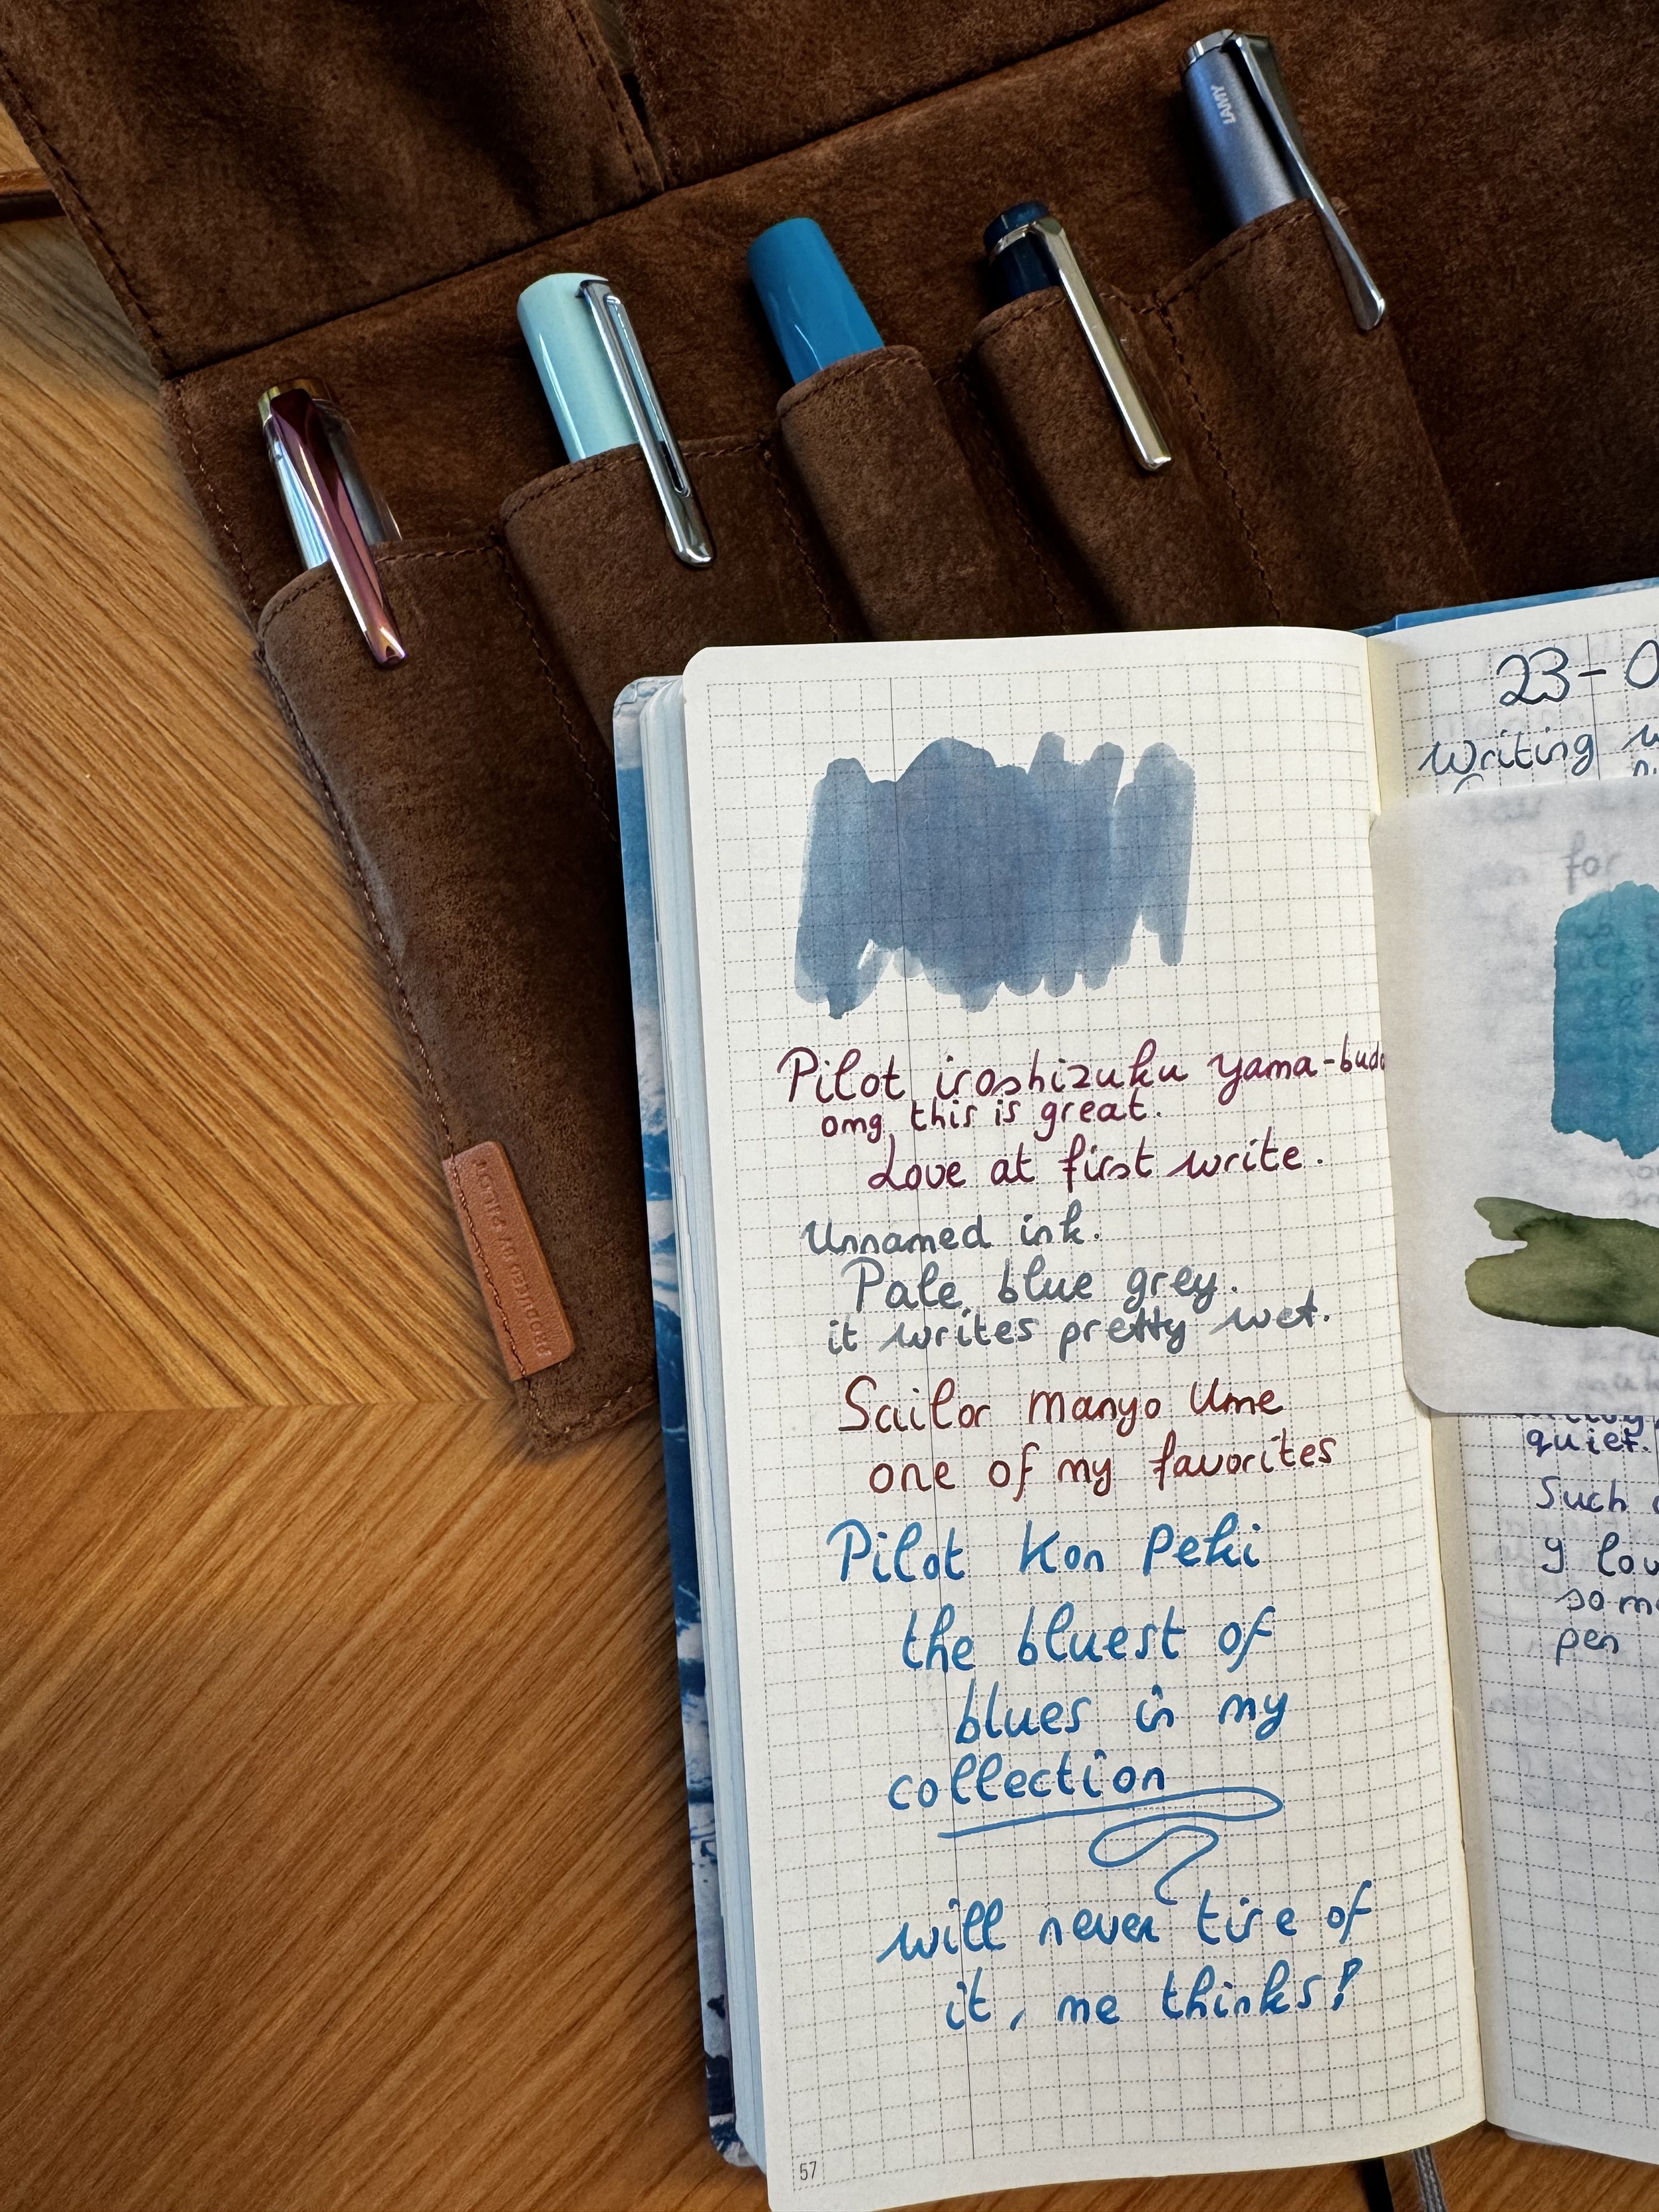 LAMY
PRODUCED BY PILOT
Pilot iroshizuku yama-budo
omg this is great.
Love at first write.
Unnamed ink.
Pale blue grey.
it writes pretty wet.
Sailor Manyo Ume
one of my favorites
Pilot Kon Peki
the bluest of
blues in my
collection
will never tire of
it, me thinks!
57
23-0
Writing
for
quiet.
Such
I lov
some
pen